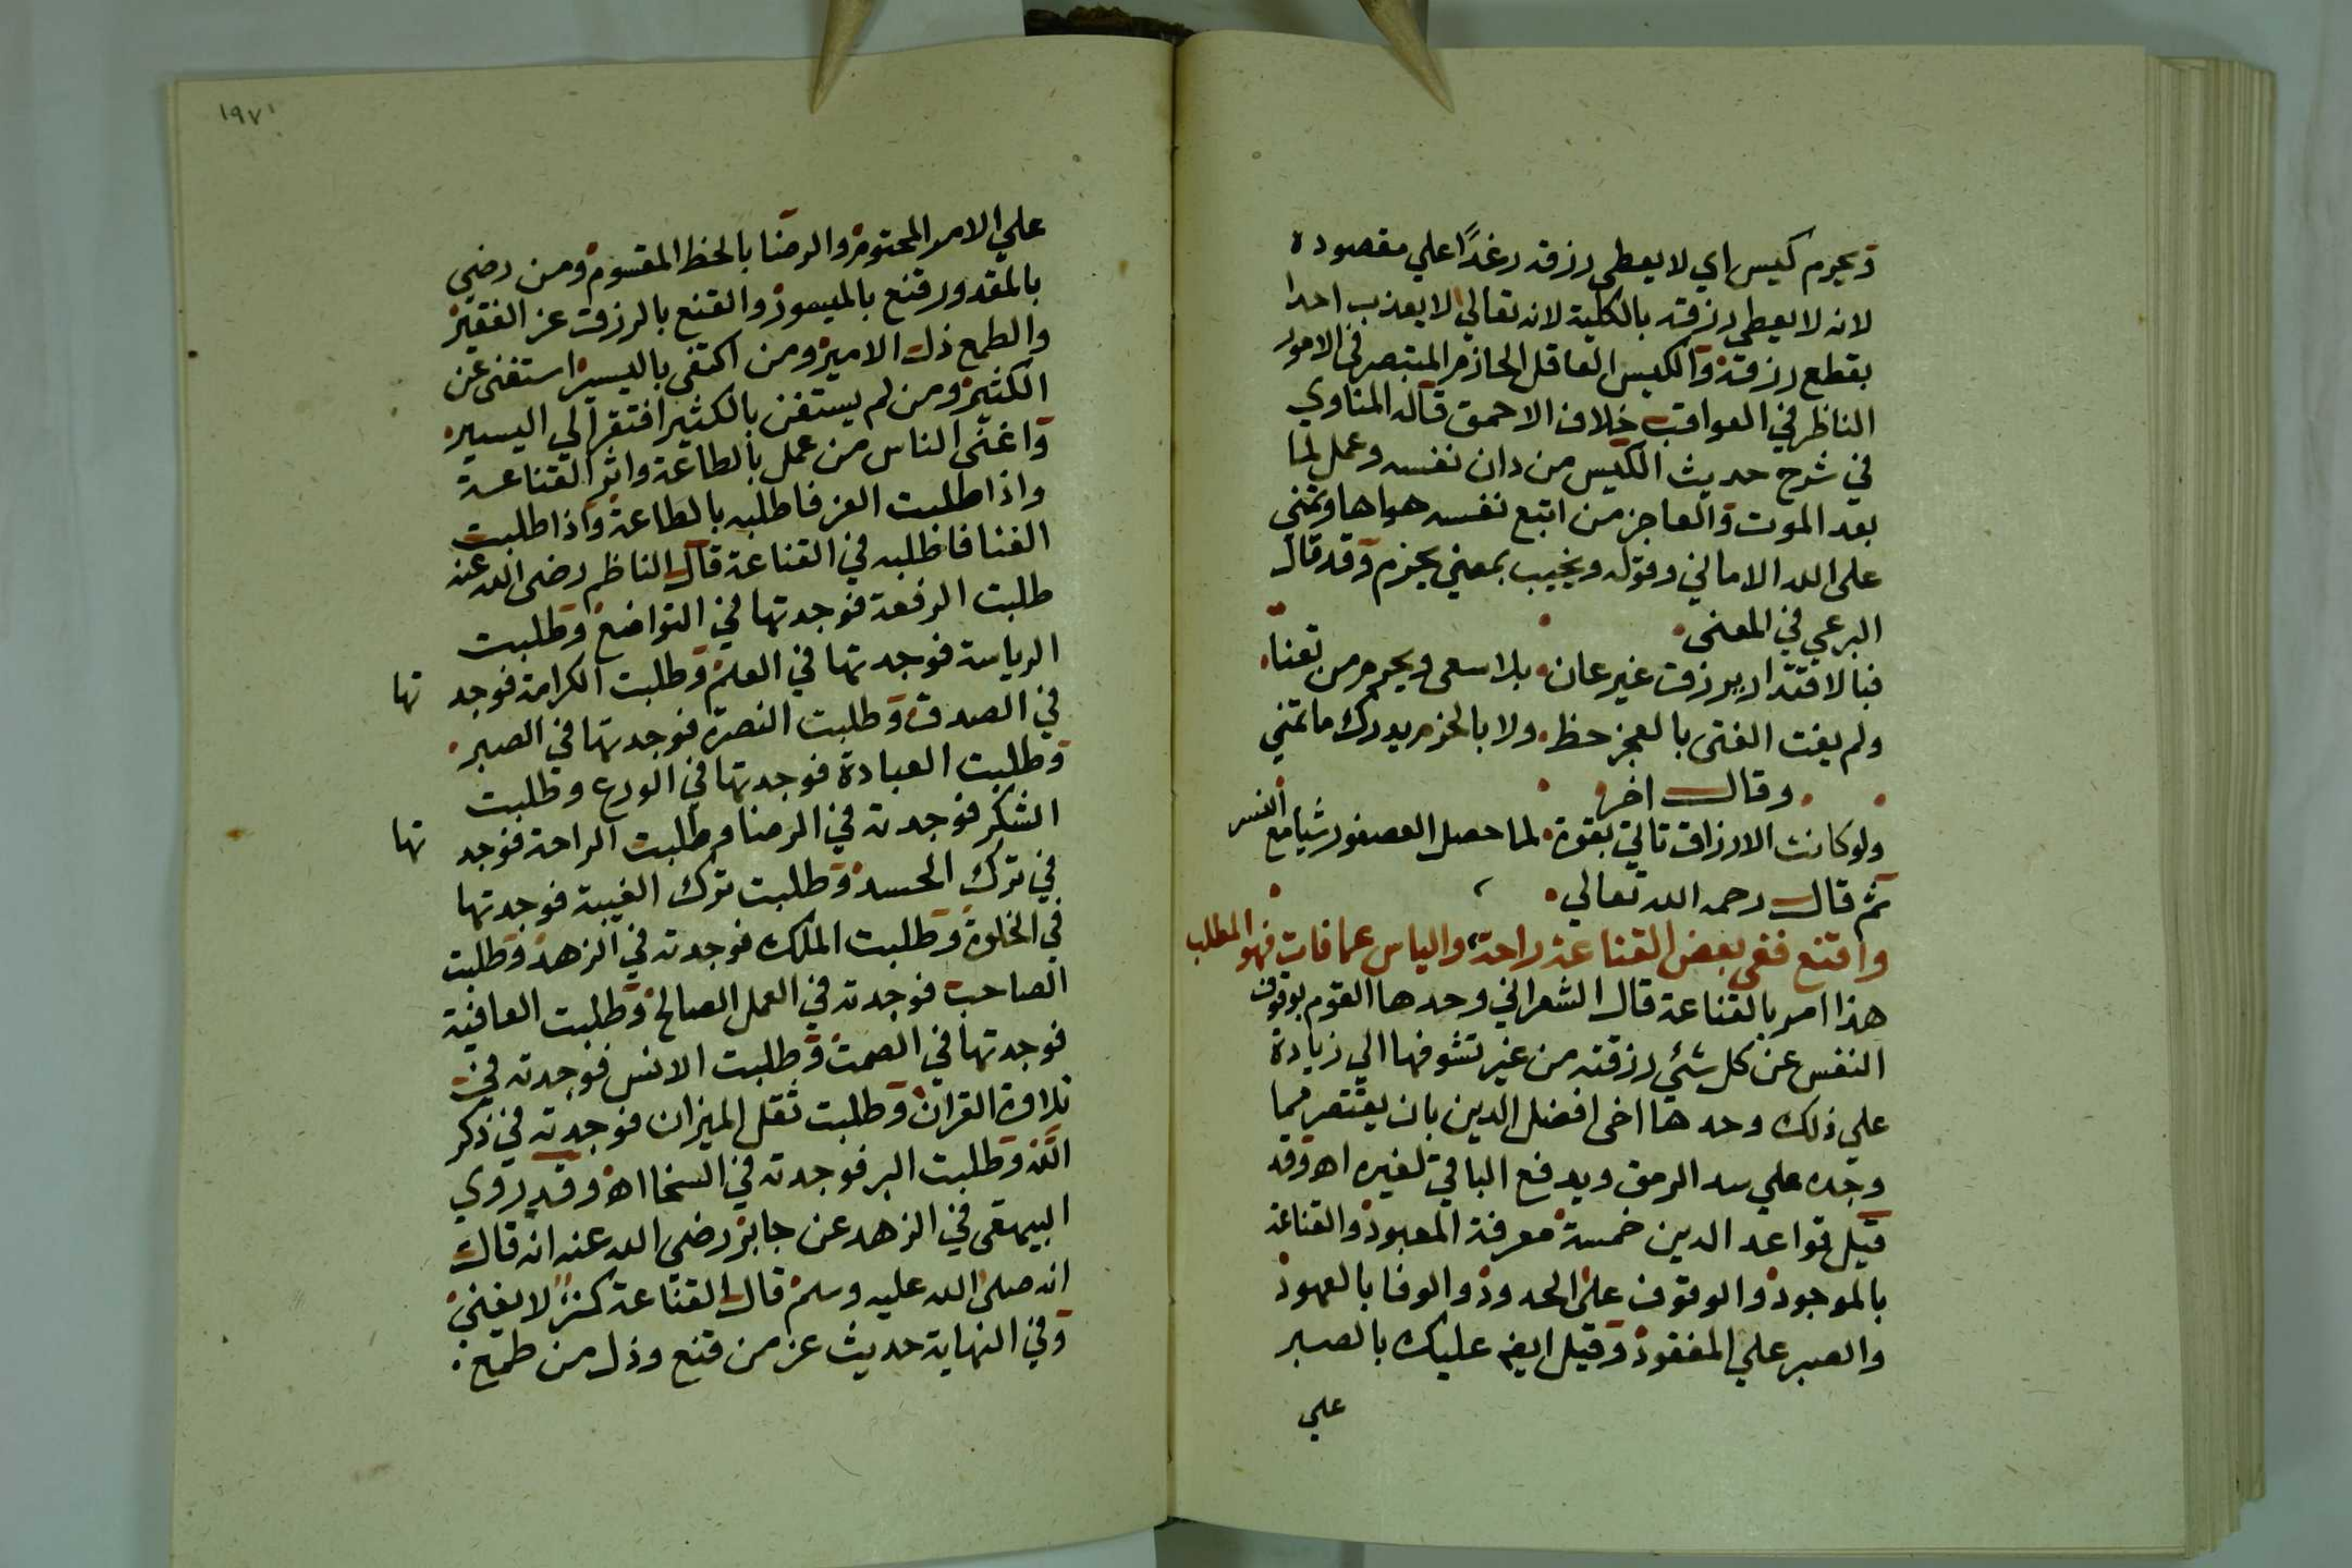 ويحرم كيس اي لا يعطى رزقه رغدًا علي مقصوده
لانه لا يعطي رزقه بالكلية لانه تعالي لا يعذب احدا
بقطع رزقه والكيس العاقل الحازم المتبصر في الامور
الناظر في العواقب خلاف الاحمق قاله المناوي
في شرح حديث الكيس من دان نفسه وعمل لما
بعد الموت والعاجز من اتبع نفسه هواها وتمني
على الله الاماني وقوله ويخيب بمعني يحرم وقد قال
البرعي في المعنى
فبالاقتدار يرزق غير عان بلا سعى ويحرم من تعنا
ولم يفت الفتى بالعجز حظ ولا بالحزم يدرك ما تمني
وقال اخر
ولو كانت الارزاق تاتي بقوة لما حصل العصفور شيا مع النسر
ثم قال رحمه الله تعالي
واقنع ففى بعض القناعة راحة والياس عما فات فهو المطلب
هذا امر بالقناعة قال الشعراني وحدها القوم بوقوف
النفس عن كل شئ رزقته من غير تشوفها الي زيادة
علي ذلك وحدها اخى افضل الدين بان يقتصر فيما
وجده علي سد الرمق ويدفع الباقي لغيره اه وقد
قيل قواعد الدين خمسة معرفة المعبود والقناعة
بالموجود والوقوف على الحدود والوفا بالعهود
والصبر علي المفقود وقيل ايض عليك بالصبر
علي
١٩٧
علي الامر المحتوم والرضا بالحظ المقسوم ومن رضي
بالمقدور قنع بالميسور والقنع بالرزق عز الفقير
والطمع ذل الامير ومن اكتفى باليسير استغنى عن
الكثير ومن لم يستغن بالكثير افتقر الي اليسير
واغنى الناس من عمل بالطاعة واثر القناعة
واذا طلبت العز فاطلبه بالطاعة واذا طلبت
الغنا فاطلبه في القناعة قال الناظم رضى الله عنه
طلبت الرفعة فوجدتها في التواضع وطلبت
الرياسة فوجدتها في العلم وطلبت الكرامة فوجد تها
في الصدق وطلبت النصرة فوجدتها في الصبر
وطلبت العبادة فوجدتها في الورع وطلبت
الشكر فوجدته في الرضا وطلبت الراحة فوجد تها
في ترك الحسد وطلبت ترك الغيبة فوجدتها
في الخلوة وطلبت الملك فوجدته في الزهد وطلبت
الصاحب فوجدته في العمل الصالح وطلبت العافية
فوجدتها في الصمت وطلبت الانس فوجدته في
تلاوة القران وطلبت ثقل الميزان فوجدته في ذكر
الله وطلبت البر فوجدته في السخا اه وقد روي
البيهقى في الزهد عن جابر رضى الله عنه انه قال
انه صلى الله عليه وسلم قال القناعة كنز لا يفنى
وفي النهاية حديث عز من قنع وذل من طمع